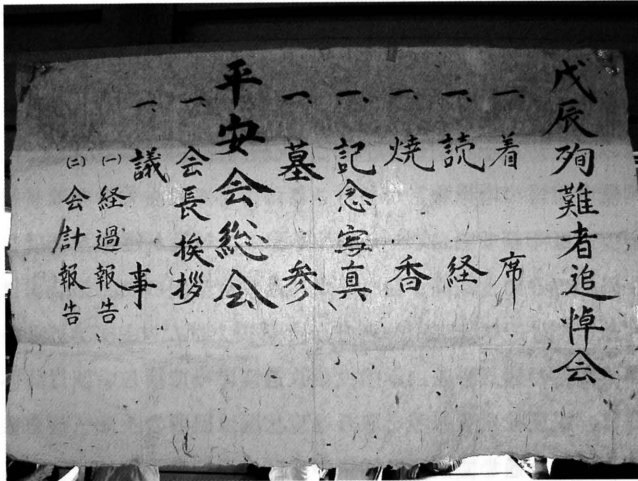 戊辰殉難者追悼会
一、着席
一、読経
一、焼香
一、記念写真
一、墓参
平安会総会
一、会長挨拶
一、議事
(一)経過報告
(二)会計報告